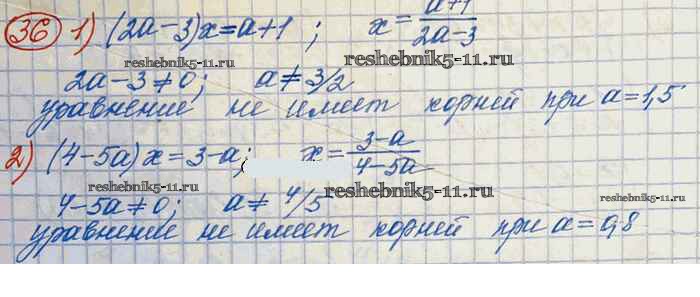 36 1) (2a-3)x=a+1; x=a+1/2a-3
reshebnik5-11.ru reshebnik5-11.ru
2a-3≠0; a≠3/2
уравнение не имеет корней при a=1,5
reshebnik5-11.ru
2) (4-5a)x=3-a; x=3-a/4-5a
reshebnik5-11.ru reshebnik5-11.ru
4-5a≠0; a≠4/5
уравнение не имеет корней при a=0,8
reshebnik5-11.ru